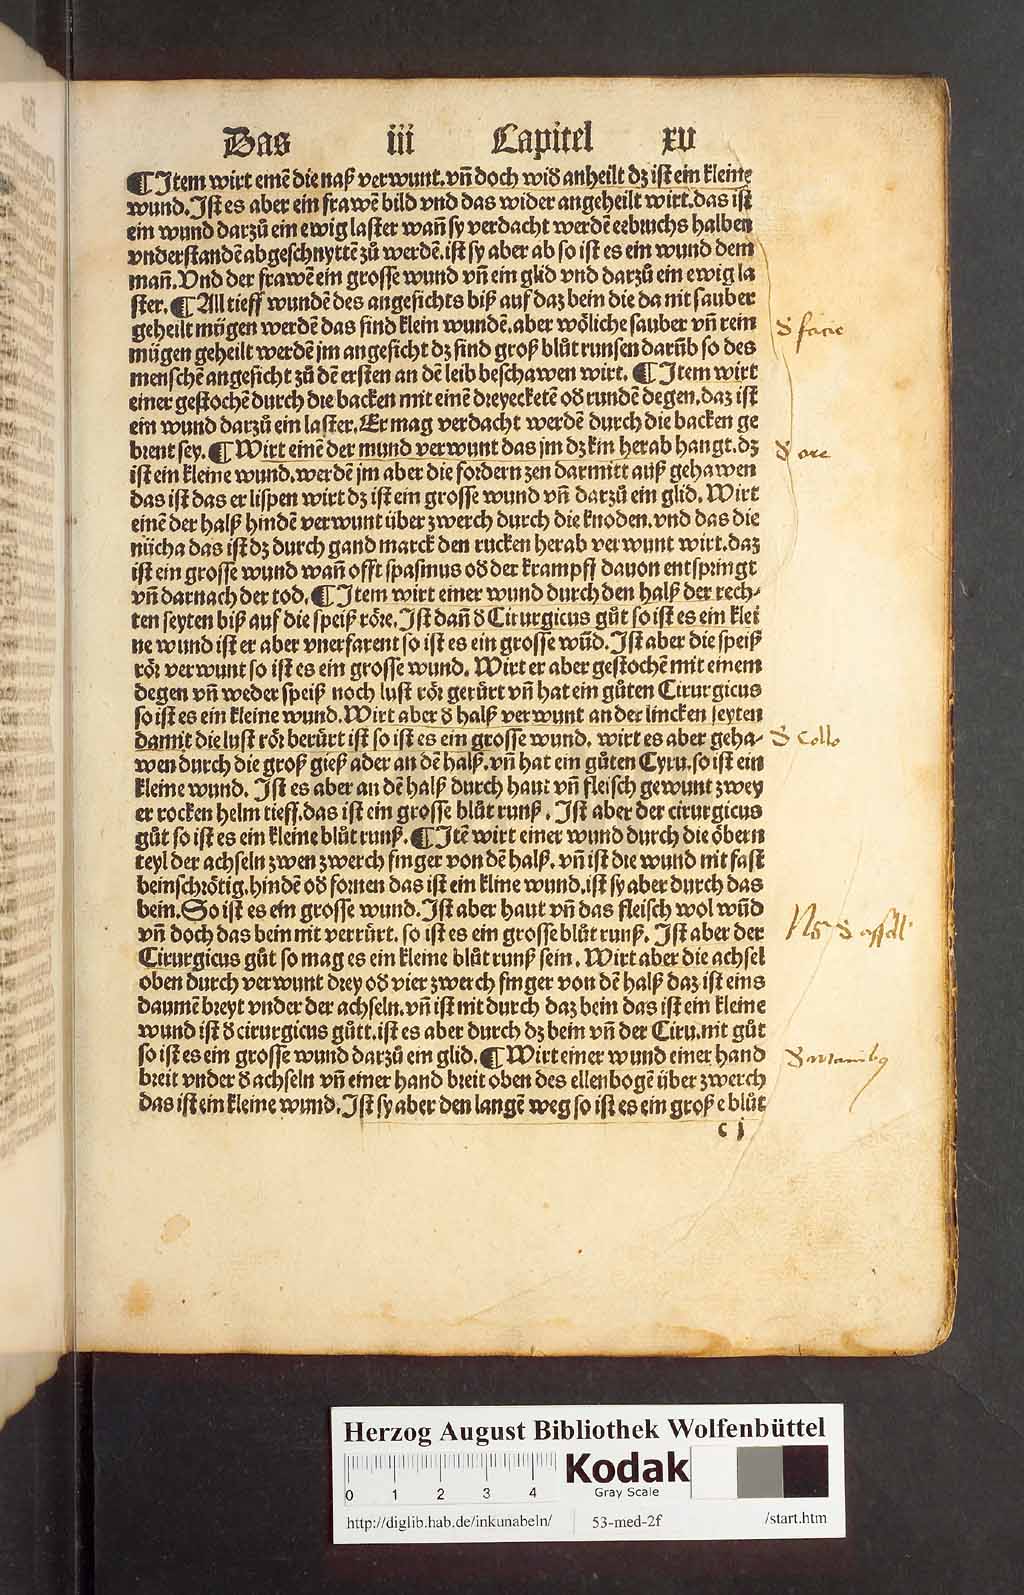 Das iii Capitel xv
¶ Item wirt einē die naß verwunt. vñ doch wid̄ anheilt dz ist ein kleine
wund. Ist es aber ein frawē bild vnd das wider angeheilt wirt. das ist
ein wund darzů ein ewig laster wañ sy verdacht werdē eebruchs halben
vnderstandē abgeschnyttē zů werdē. ist sy aber ab so ist es ein wund dem
mañ. Vnd der frawē ein grosse wund vñ ein glid vnd darzů ein ewig la
ster. ¶ All tieff wundē des angesichts biß auf daz bein die da nit sauber
geheilt mügen werdē das sind klein wundē. aber wöliche sauber vñ rein
mügen geheilt werdē jm angesicht dz sind groß blůt runsen darūb so des
menschē angesicht zů dē ersten an dē leib beschawen wirt. ¶ Item wirt
einer gestochē durch die backen mit einē dreyecketē od̄ rundē degen. daz ist
ein wund darzů ein laster. Er mag verdacht werdē durch die backen ge
brent sey. ¶ Wirt einē der mund verwunt das jm dz kin herab hangt. dz
ist ein kleine wund. werdē jm aber die fordern zen darmitt auß gehawen
das ist das er lispen wirt dz ist ein grosse wund vñ darzů ein glid. Wirt
einē der halß hindē verwunt über zwerch durch die knoden. vnd das die
nücha das ist dz durch gand marck den rucken herab verwunt wirt. daz
ist ein grosse wund wañ offt spasmus od̄ der krampff dauon entspringt
vñ darnach der tod. ¶ Item wirt einer wund durch den halß der rech-
ten seyten biß auf die speiß röre. Ist dañ d̄ Cirurgicus gůt so ist es ein klei
ne wund ist er aber vnerfarent so ist es ein grosse wūd. Ist aber die speiß
rör verwunt so ist es ein grosse wund. Wirt er aber gestochē mit einem
degen vñ weder speiß noch lufft rör gerürt vñ hat ein gůten Cirurgicus
so ist es ein kleine wund. Wirt aber d̄ halß verwunt an der lincken seyten
damit die lufft rör berürt ist so ist es ein grosse wund. wirt es aber geha-
wen durch die groß gieß ader an dē halß. vñ hat ein gůten Cyru. so ist ein
kleine wund. Ist es aber an dē halß durch haut vñ fleisch gewunt zwey
er rocken helm tieff. das ist ein grosse blůt runß. Ist aber der cirurgicus
gůt so ist es ein kleine blůt runß. ¶ Itē wirt einer wund durch die öbern
teyl der achseln zwen zwerch finger von dē halß. vñ ist die wund nit fast
beinschrötig. hindē od̄ fornen das ist ein kline wund. ist sy aber durch das
bein. So ist es ein grosse wund. Ist aber haut vñ das fleisch wol wūd
vñ doch das bein nit verrürt. so ist es ein grosse blůt runß. Ist aber der
Cirurgicus gůt so mag es ein kleine blůt runß sein. Wirt aber die achsel
oben durch verwunt drey od̄ vier zwerch finger von dē halß daz ist eins
daumē breyt vnder der achseln. vñ ist nit durch daz bein das ist ein kleine
wund ist d̄ cirurgicus gůtt. ist es aber durch dz bein vñ der Ciru. nit gůt
so ist es ein grosse wund darzů ein glid. ¶ Wirt einer wund einer hand
breit vnder d̄ achseln vñ einer hand breit oben des ellenbogē über zwerch
das ist ein kleine wund. Ist sy aber den langē weg so ist es ein große blůt
c j
d̄ facie
d̄ ore
d̄ Collo
d̄ manibꝯ
Herzog August Bibliothek Wolfenbüttel
0 1 2 3 4
Kodak
Gray Scale
http://diglib.hab.de/inkunabeln/ 53-med-2f /start.htm